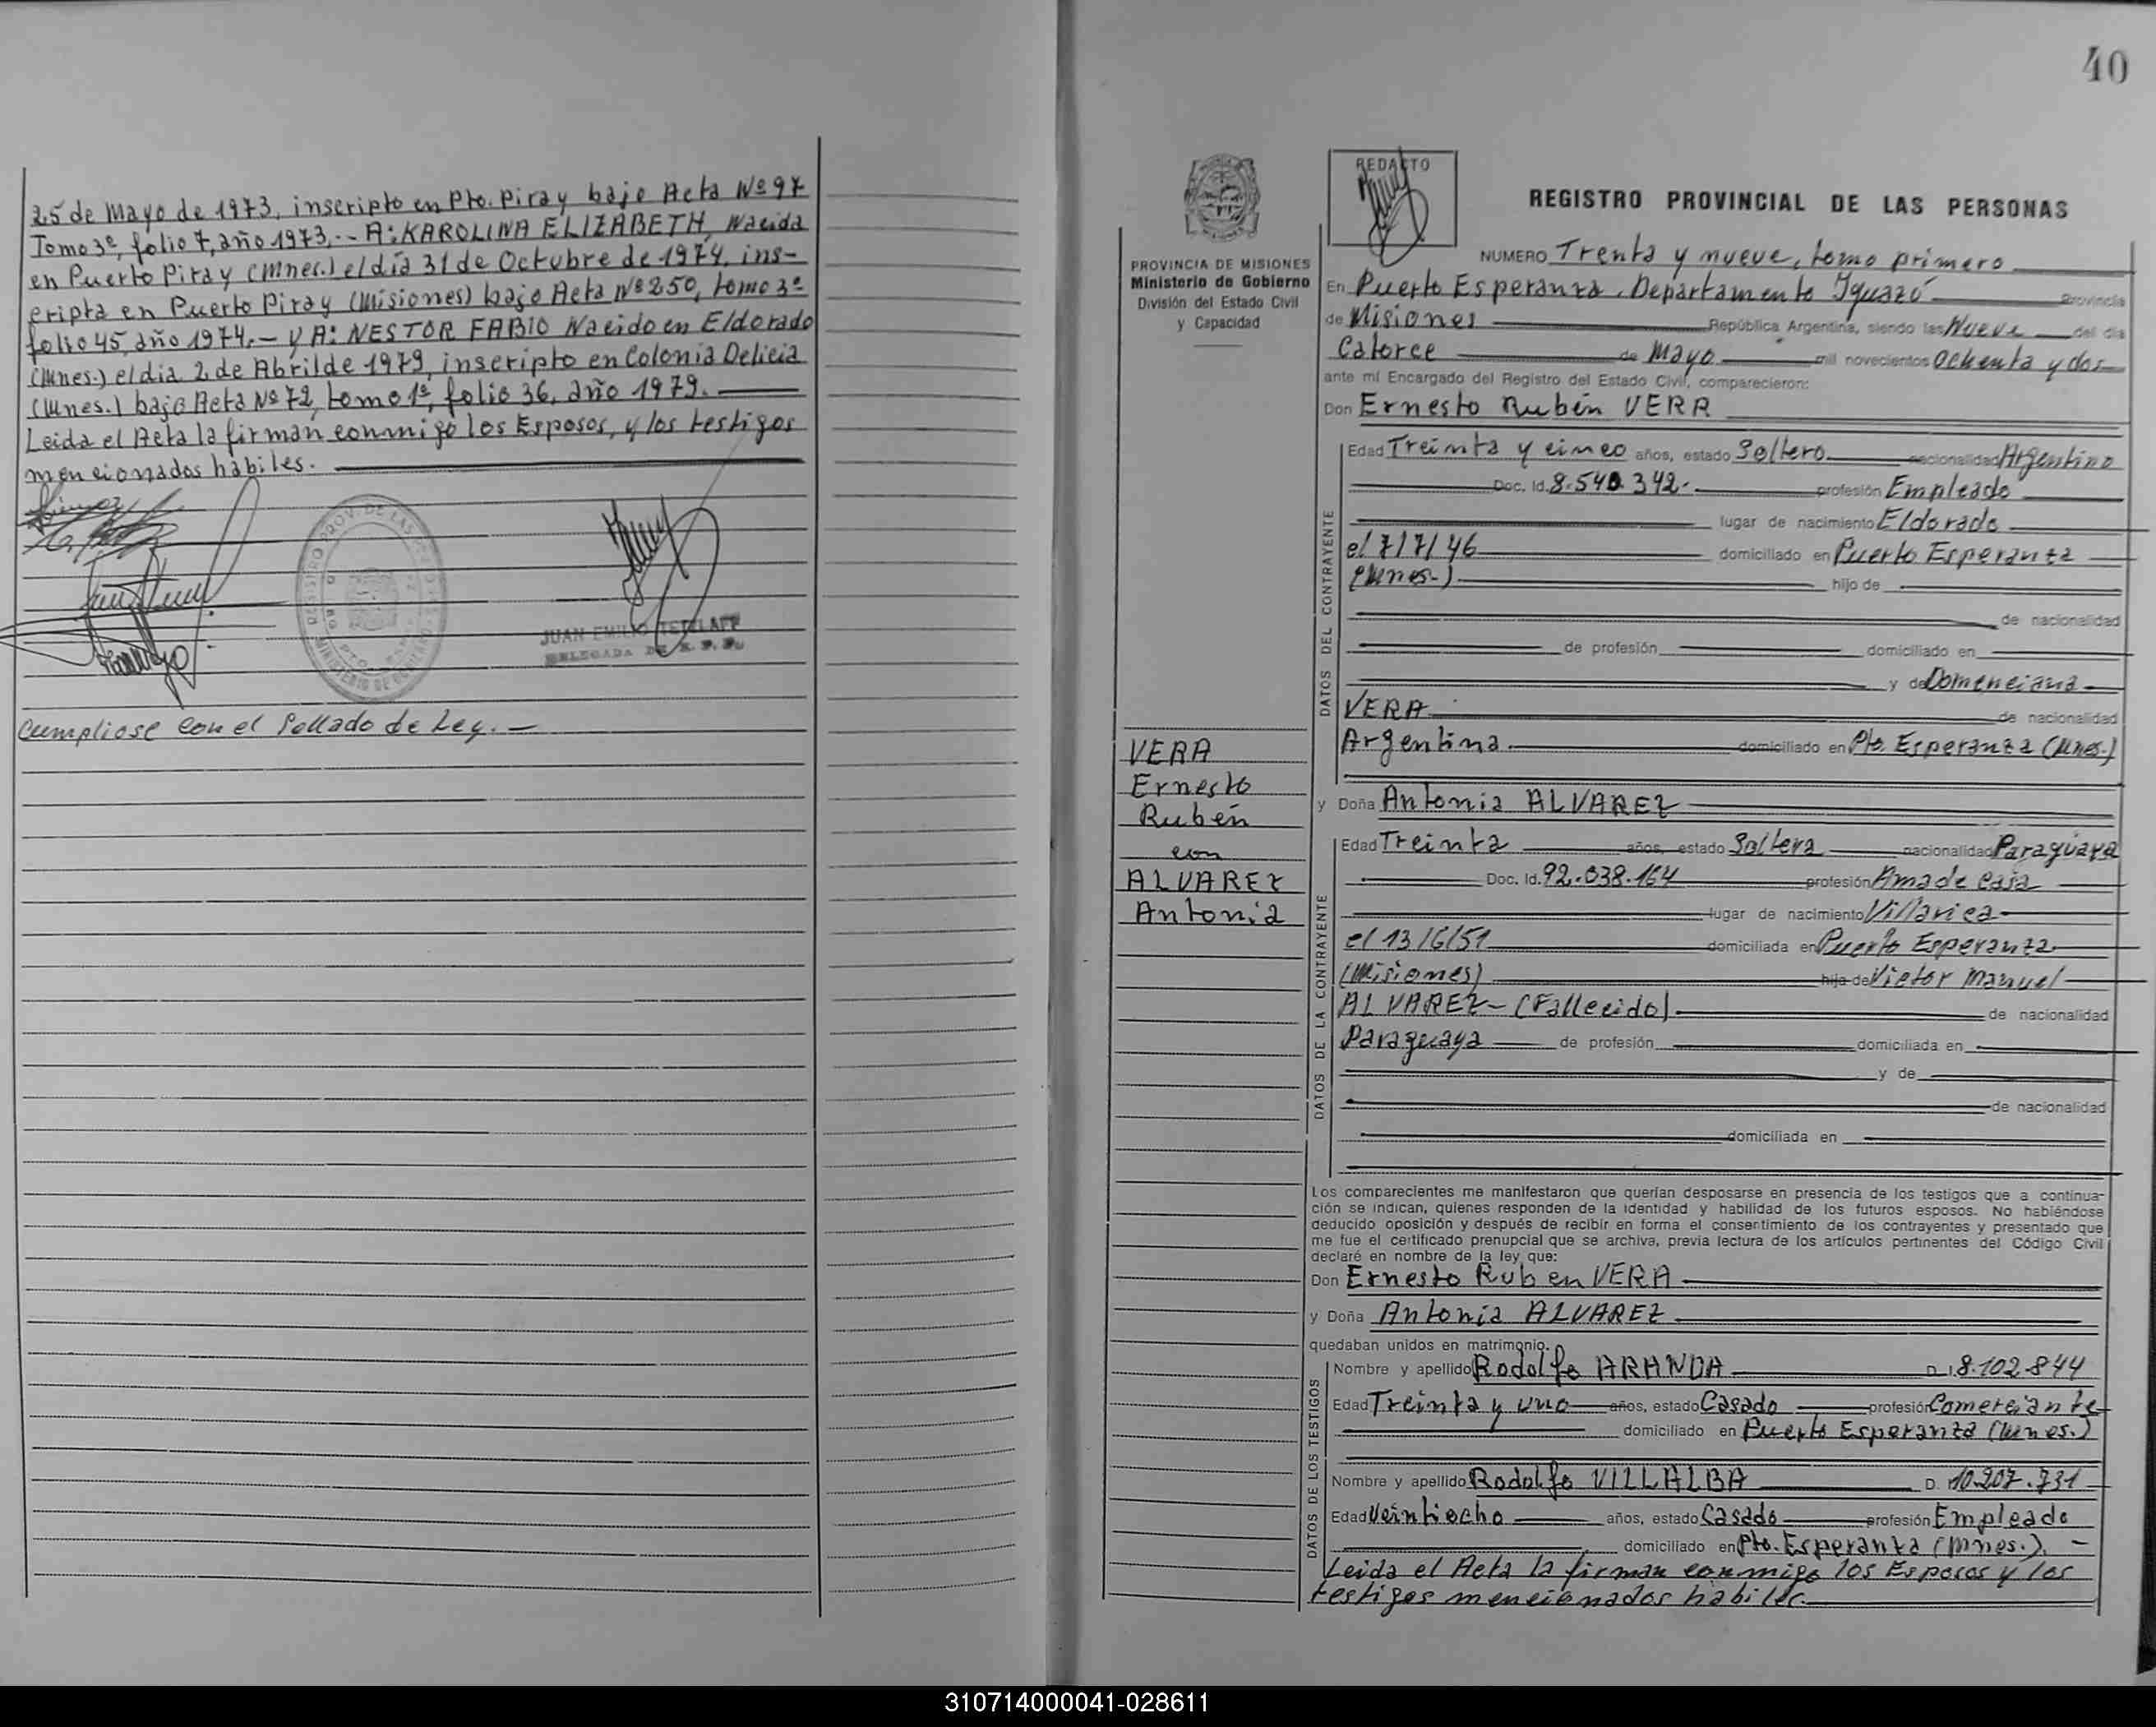 25 de Mayo de 1973, inscripto en Pto. Piray bajo Acta Nº 97
Tomo 3º, folio 7, año 1973.- A: KAROLINA ELIZABETH, Nacida
en Puerto Piray (Mnes.) el día 31 de Octubre de 1974, ins-
cripta en Puerto Piray (Misiones) bajo Acta Nº 250, tomo 3º
folio 45, año 1974.- y A: NESTOR FABIO Nacido en Eldorado
(Mnes.) el día 2 de Abril de 1979, inscripto en Colonia Delicia
(Mnes.) bajo Acta Nº 72, tomo 1º, folio 36, año 1979.
Leida el Acta la firman conmigo los Esposos, y los testigos
mencionados hábiles.
JUAN EMILIO
Cumpliose con el Sellado de Ley.-
40
REDACTO
REGISTRO PROVINCIAL DE LAS PERSONAS
PROVINCIA DE MISIONES
Ministerio de Gobierno
División del Estado Civil
y Capacidad
VERA
Ernesto
Rubén
con
ALVAREZ
Antonia
NUMERO Trenta y nueve, tomo primero
En Puerto Esperanza, Departamento Iguazú Provincia
de Misiones República Argentina, siendo las Nueve del día
Catorce de Mayo mil novecientos Ochenta y dos
ante mí Encargado del Registro del Estado Civil, comparecieron:
Don Ernesto Rubén VERA
DATOS DEL CONTRAYENTE
Edad Treinta y cinco años, estado Soltero nacionalidad Argentino
Doc. Id. 8.540.342.- profesión Empleado
lugar de nacimiento Eldorado
el 7/7/46 domiciliado en Puerto Esperanza
(Mnes.-) hijo de
de nacionalidad
de profesión domiciliado en
y de Domenciana
VERA de nacionalidad
Argentina domiciliado en Pto. Esperanza (Mnes.)
y Doña Antonia ALVAREZ
DATOS DE LA CONTRAYENTE
Edad Treinta años, estado Soltera nacionalidad Paraguaya
Doc. Id. 92.038.164 profesión Ama de casa
lugar de nacimiento Villarica
el 13/6/51 domiciliada en Puerto Esperanza
(Misiones) hija de Victor Manuel
ALVAREZ- (Fallecido) de nacionalidad
Paraguaya de profesión domiciliada en
y de
de nacionalidad
domiciliada en
Los comparecientes me manifestaron que querían desposarse en presencia de los testigos que a continua-
ción se indican, quienes responden de la identidad y habilidad de los futuros esposos. No habiéndose
deducido oposición y después de recibir en forma el consentimiento de los contrayentes y presentado que
me fue el certificado prenupcial que se archiva, previa lectura de los artículos pertinentes del Código Civil
declaré en nombre de la ley que:
Don Ernesto Ruben VERA
y Doña Antonia ALVAREZ
quedaban unidos en matrimonio.
DATOS DE LOS TESTIGOS
Nombre y apellido Rodolfo ARANDA D.I. 8.102.844
Edad Treinta y uno años, estado Casado profesión Comerciante
domiciliado en Puerto Esperanza (Mnes.)
Nombre y apellido Rodolfo VILLALBA D. 10.207.731
Edad Veintiocho años, estado Casado profesión Empleado
domiciliado en Pto. Esperanza (Mnes.). -
Leida el Acta la firman conmigo los Esposos y los
testigos mencionados hábiles.
310714000041-028611